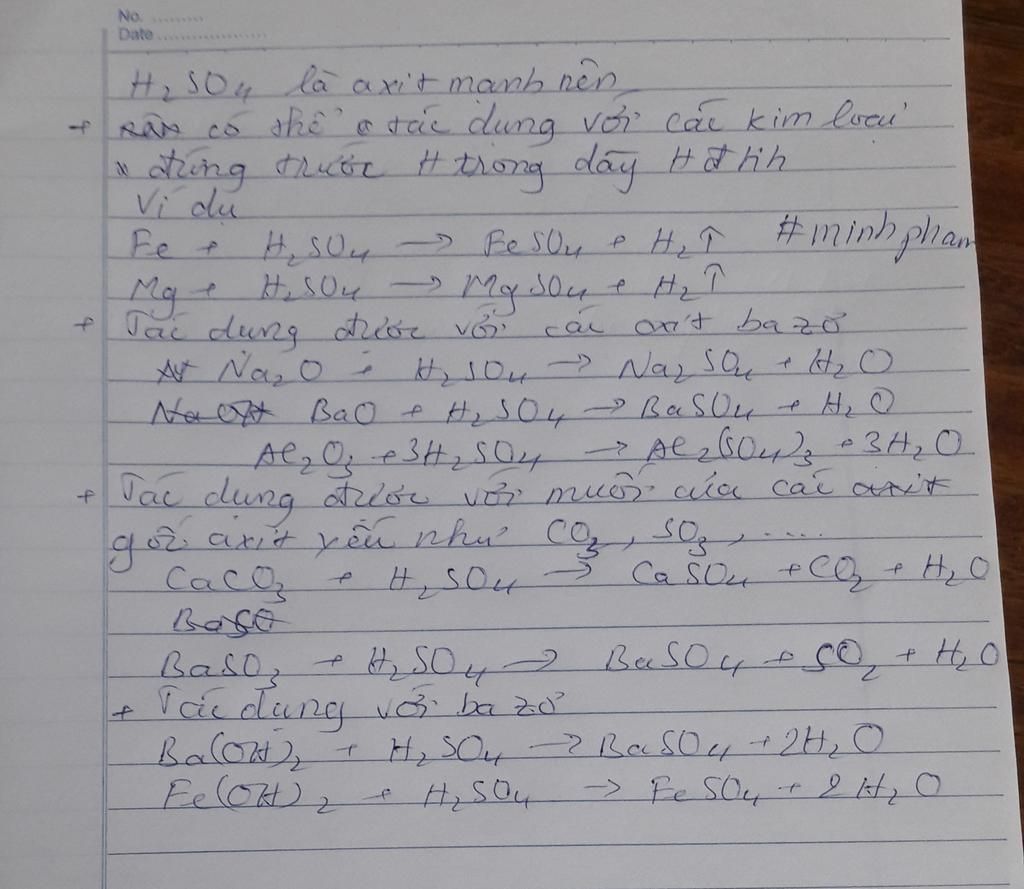 No. ..........
Date ....................
H₂SO₄ là axit mạnh nên
+ có thể tác dụng với các kim loại
đứng trước H trong dãy Hđ hh
Ví dụ
Fe + H₂SO₄ → FeSO₄ + H₂↑ #minhpham
Mg + H₂SO₄ → MgSO₄ + H₂↑
+ Tác dụng được với các oxit bazơ
Na₂O + H₂SO₄ → Na₂SO₄ + H₂O
BaO + H₂SO₄ → BaSO₄ + H₂O
Al₂O₃ + 3H₂SO₄ → Al₂(SO₄)₃ + 3H₂O
+ Tác dụng được với muối của các axit
gốc axit yếu như CO₃, SO₃, .....
CaCO₃ + H₂SO₄ → CaSO₄ + CO₂ + H₂O
BaSO
BaSO₃ + H₂SO₄ → BaSO₄ + SO₂ + H₂O
+ Tác dụng với bazơ
Ba(OH)₂ + H₂SO₄ → BaSO₄ + 2H₂O
Fe(OH)₂ + H₂SO₄ → FeSO₄ + 2H₂O